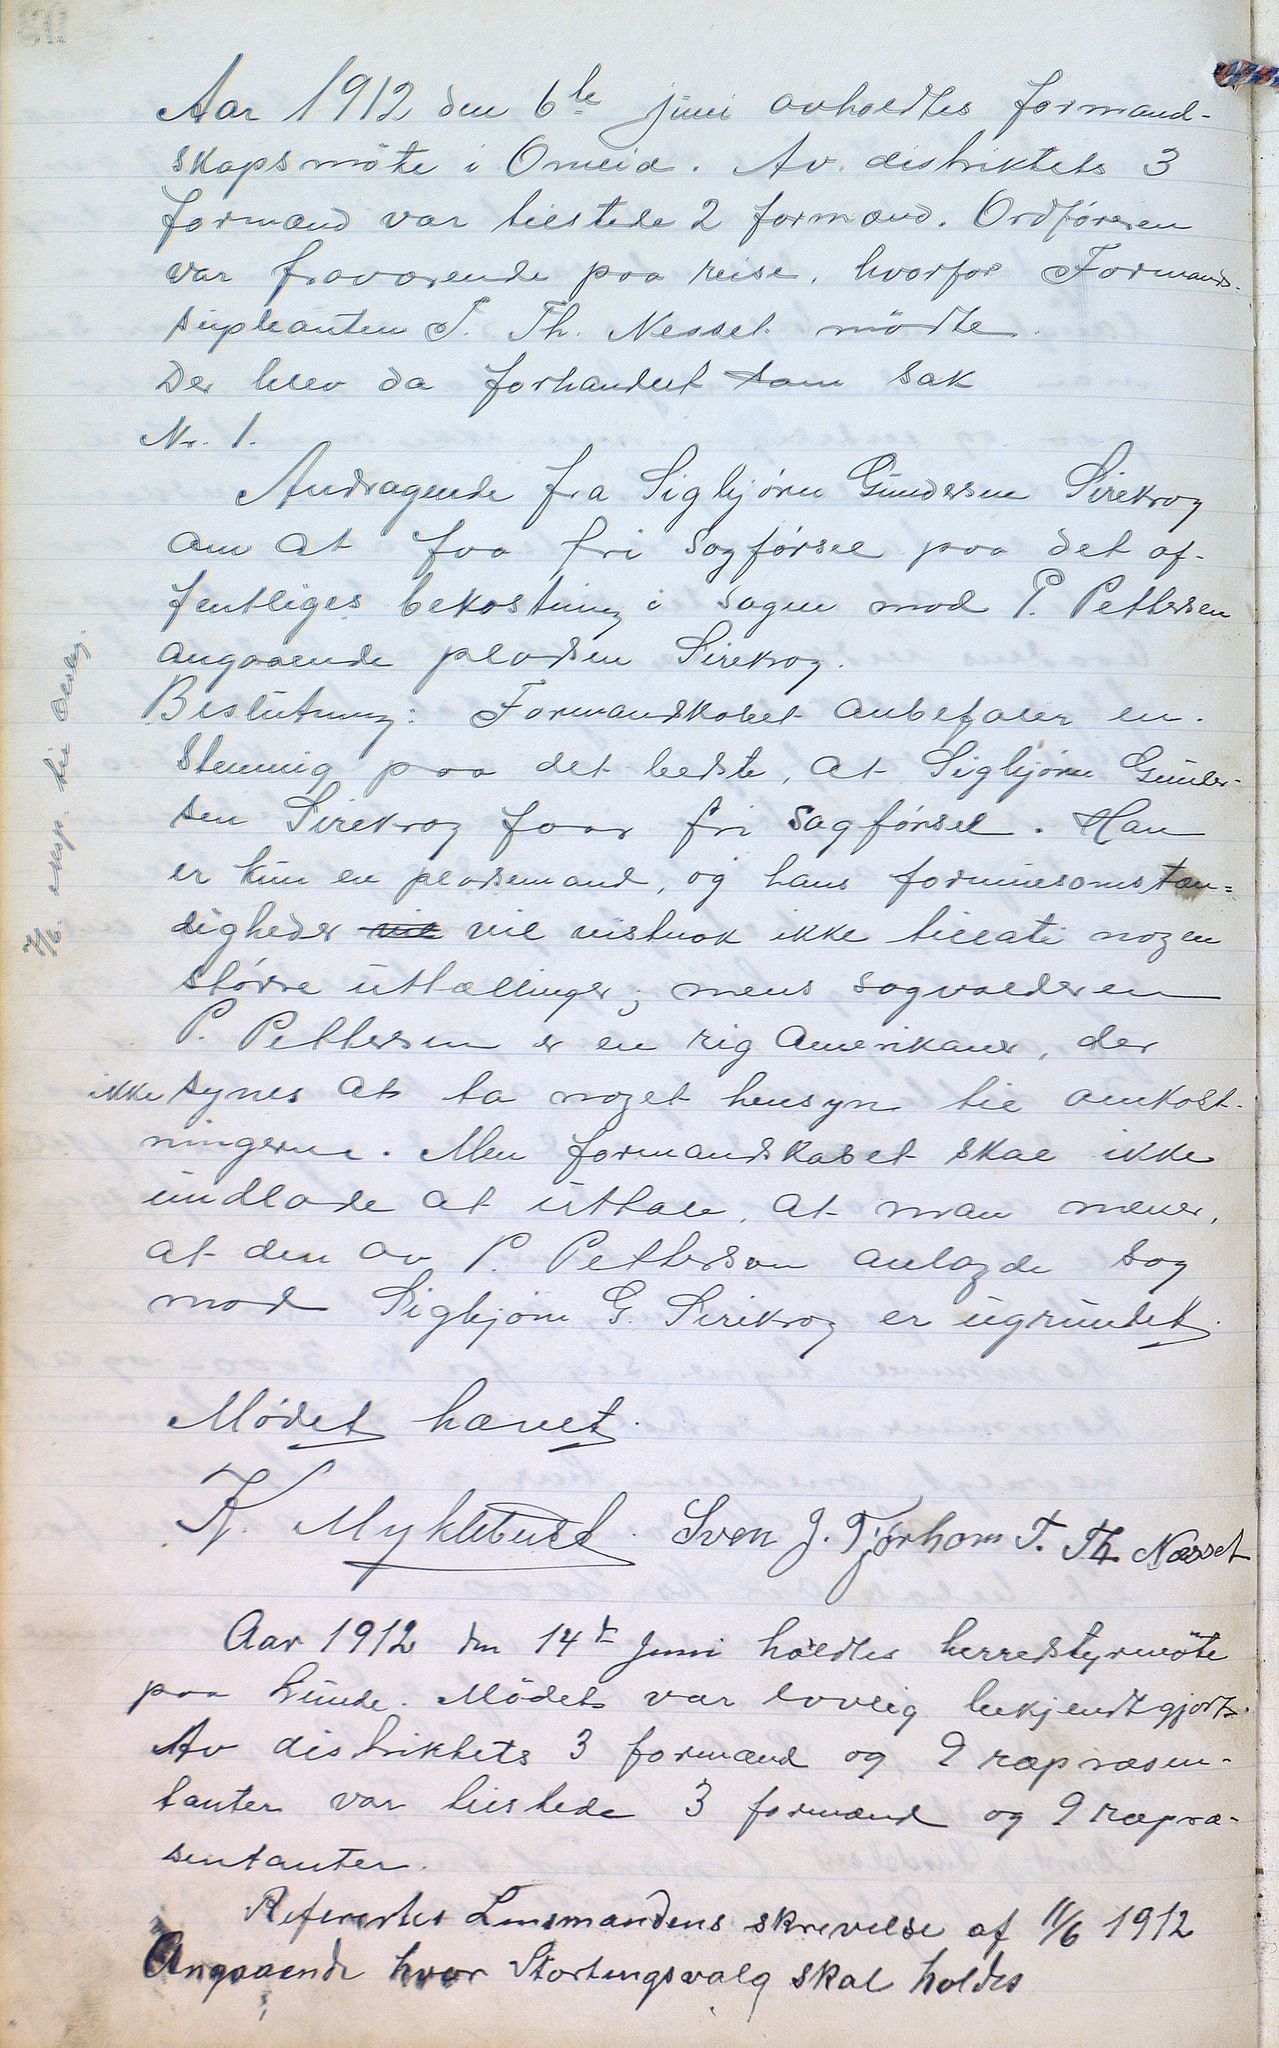 Aar 1912 den 6te juni avholdtes formand-
skapsmöte i Omeid. Av distriktets 3
formænd var tilstede 2 formænd. Ordføreren
var fraværende paa reise, hvorfor Formands-
supleanten T. Th. Nesset mödte.
Der blev da forhandlet som sak
No. 1.
Andragende fra Sigbjørn Gundersen Sirekrog
om at faa fri sagførsel paa det of-
fentliges bekostning i sagen mod P. Pettersen
angaaende pladsen Sirekrog.
Beslutning: Formandskabet anbefaler en-
stemmig paa det bedste, at Sigbjørn Gunder-
sen Sirekrog faar fri sagførsel. Han
er kun en pladsemand, og hans formuesomstæn-
digheder vil vil nistnok ikke tillate nogen
större uttællinger; mens sagvolderen
P. Pettersen er en rig Amerikaner, der
ikke synes at ta noget hensyn til omkost-
ningerne. Men formandskabet skal ikke
undlade at uttale, at man mener,
at den av P. Pettersen anlagde sag
mod Sigbjørn G. Sirekrog er ugrundet.
Mödet hævet.
K. Myklebust. Sven J. Tjørhom T. Th. Næsset
Aar 1912 den 14de Juni holdtes herredstyrmöte
paa Lunde. Mödet var lovlig bekjendtgjort.
Av distriktets 3 formænd og 9 repræsen-
tanter var tilstede 3 formænd og 9 repræ-
sentanter.
Refererter Lensmandens skrevelse af 11/6 1912
Angaaende hvor Stortingsvalg skal holdes
7/6. eksp. til